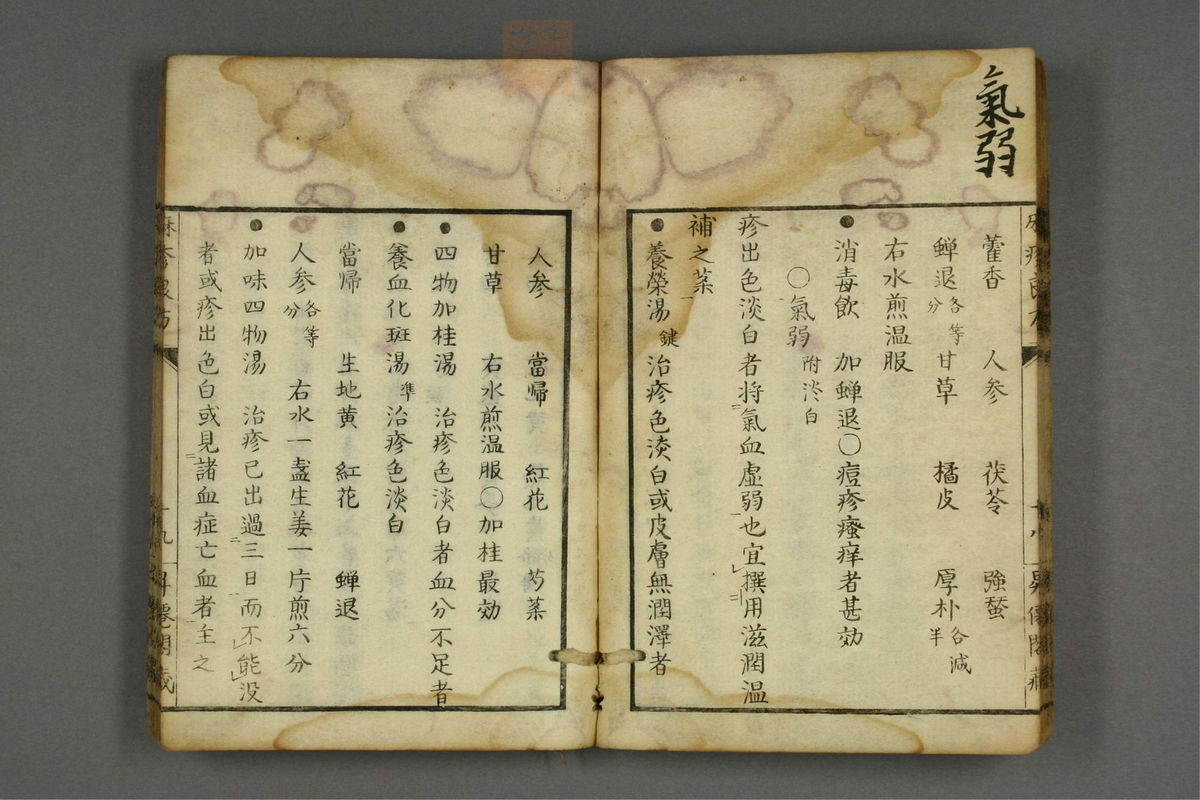 氣弱
藿香 人参 茯苓 強蚕
蝉退各等分 甘草 橘皮 厚朴各減半
右水煎温服
●消毒飲 加蝉退○痘疹瘙痒者甚効
○氣弱附淡白
疹出色淡白者将氣血虚弱也宜撰用滋潤温
補之薬
●養榮湯鍵治疹色淡白或皮膚無潤澤者
人参 當帰 紅花 芍薬
甘草 右水煎温服○加桂最効
●四物加桂湯 治疹色淡白者血分不足者
●養血化斑湯準治疹色淡白
當帰 生地黄 紅花 蝉退
人参各等分 右水一盞生姜一片煎六分
●加味四物湯 治疹已出過三日而不能没
者或疹出色白或見諸血症亡血者主之